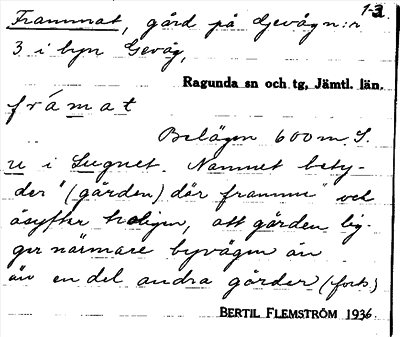 1-3.
Frammat, gård på Gevåg n:r
3 i byn Gevåg,
Ragunda sn och tg, Jämtl. län.
frámat
Belägen 600 m. S.
u i Lugnet. Namnet bety-
der "(gården) där framme" och
åsyftar troligen, att gården lig-
ger närmare byvägen än
än en del andra gårder (forts)
BERTIL FLEMSTRÖM 1936.